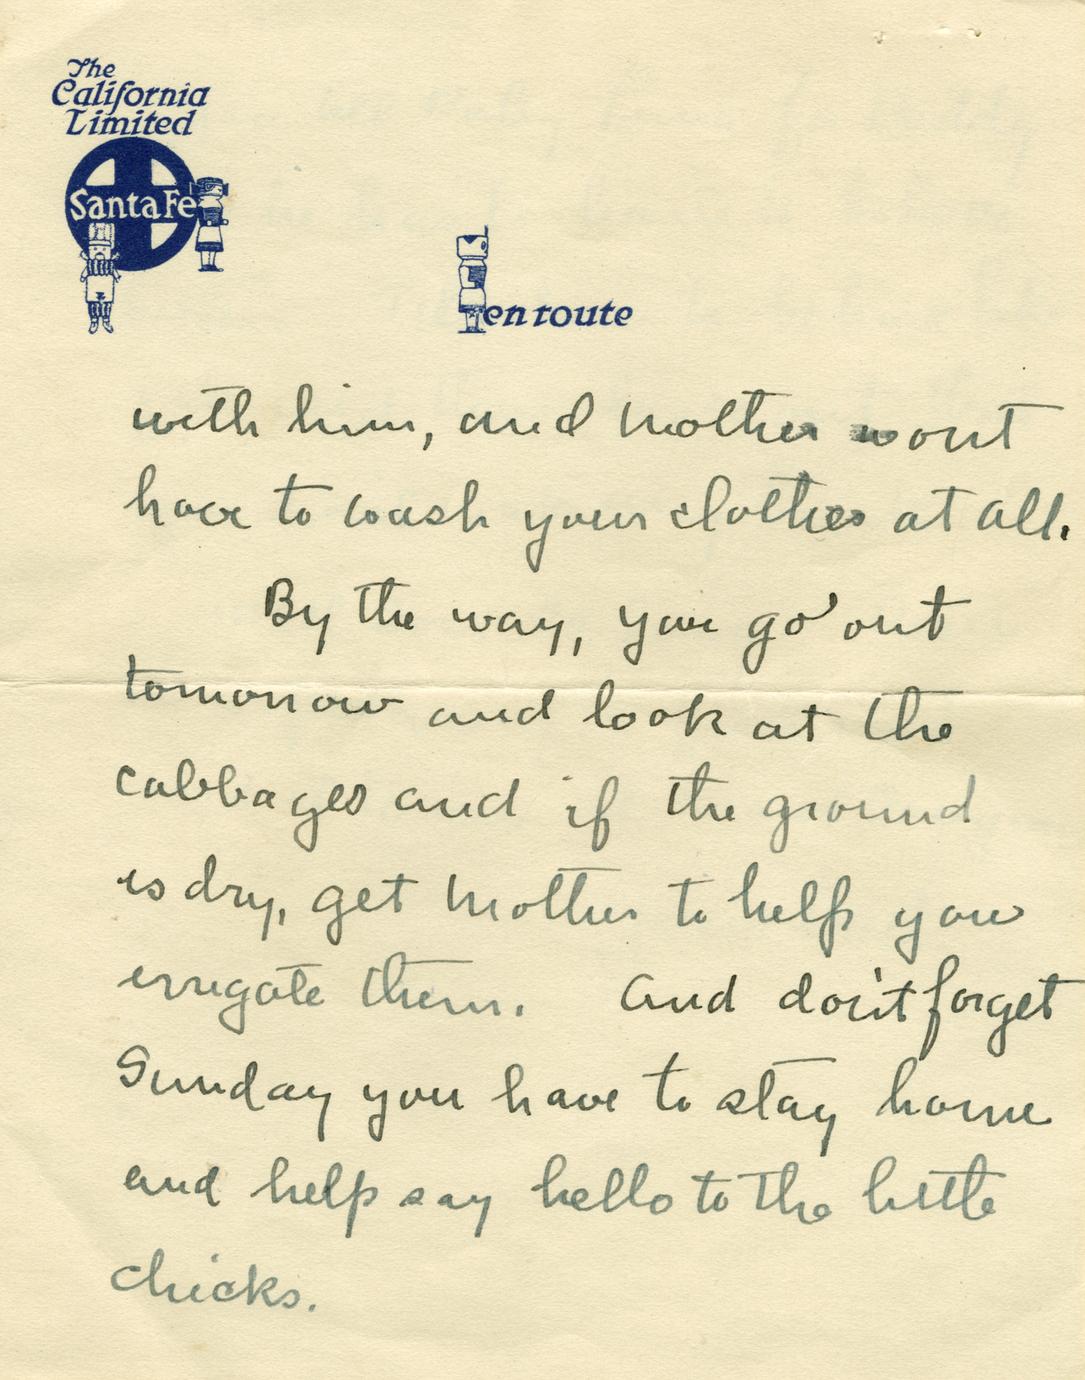 The
California
Limited
Santa Fe
en route
with him, and mother wont
have to wash your clothes at all.
By the way, you go out
tomorrow and look at the
cabbages and if the ground
is dry, get mother to help you
irrigate them. And don't forget
Sunday you have to stay home
and help say hello to the little
chicks.